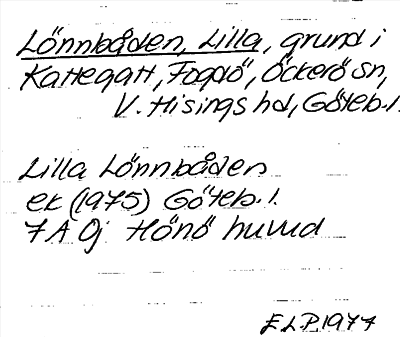 Lönnbåden, Lilla, grund i
Kattegatt, Fogdö, Öckerö sn,
V. Hisings hd, Göteb.l.
Lilla Lönnbåden
ek (1975) Göteb.l.
7A 0j Hönö huvud
ELP 1977